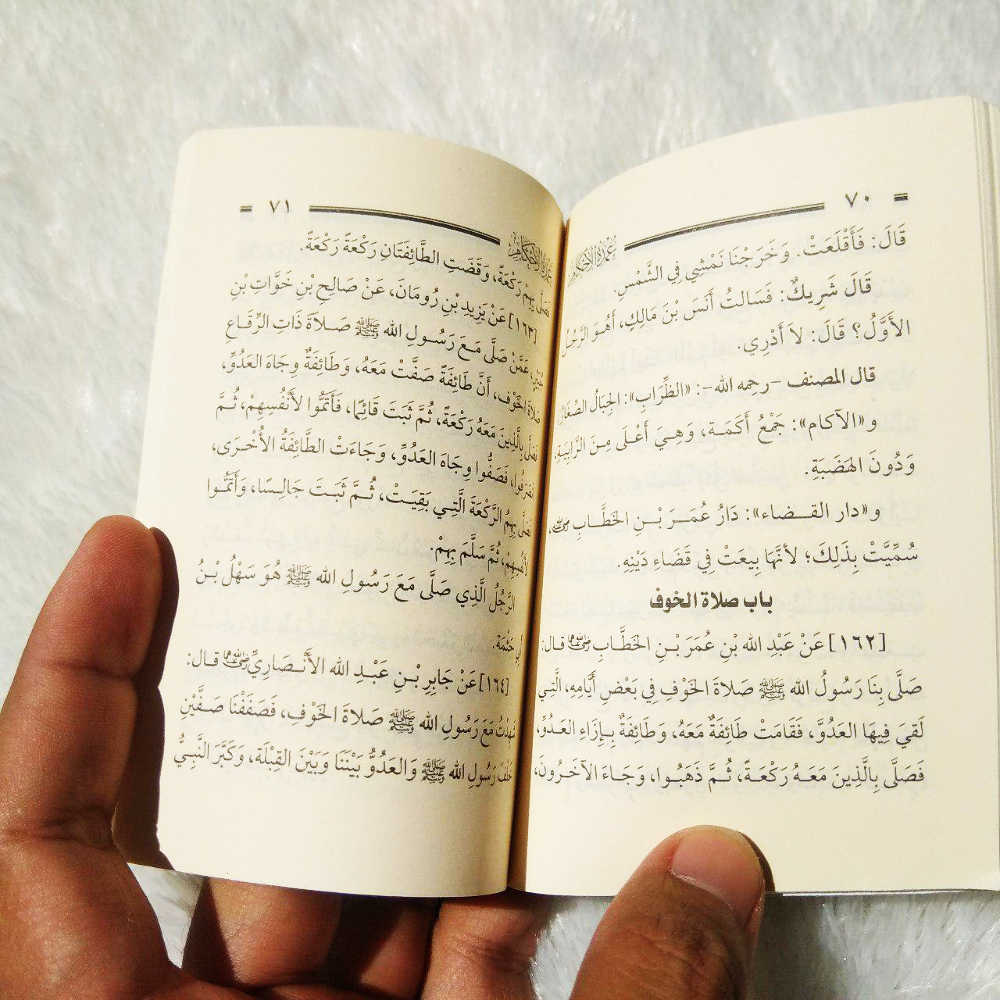 ٧٠
عمدة الأحكام
قَالَ: فَأَقْلَعَتْ. وَخَرَجْنَا نَمْشِي فِي الشَّمْسِ.
قَالَ شَرِيكٌ: فَسَالتُ أَنَسَ بْنَ مَالِكٍ، أَهُوَ الرَّجُلُ
الأَوَّلُ؟ قَالَ: لاَ أَدْرِي.
قال المصنف -رحمه الله-: «الظِّرَابِ»: الجِبَالُ الصِّغَارُ
و«الآكام»: جَمْعُ أَكَمَـة، وَهِيَ أَعْلَى مِـنَ الرَّابِيَةِ
وَدُونَ الهَضَبَةِ.
و«دار القـضاء»: دَارُ عُمَـرَ بْـنِ الخَطَّـابِ ﵁،
سُمِّيَتْ بِذَلِكَ؛ لأَنَّهَا بِيعَتْ فِي قَضَاءِ دَيْنِهِ.
باب صلاة الخوف
[١٦٢] عَنْ عَبْدِ الله بْنِ عُمَرَ بْنِ الخَطَّابِ ﵄ قال:
صَلَّى بِنَا رَسُولُ الله ﷺ صَلاةَ الخَوْفِ فِي بَعْضِ أَيَّامِهِ، الَّتِي
لَقِي فِيهَا العَدُوَّ، فَقَامَتْ طَائِفَةٌ مَعَهُ، وَطَائِفَةٌ بِـإِزَاءِ العَـدُوِّ،
فَصَلَّى بِالَّذِينَ مَعَـهُ رَكْعَةً، ثُـمَّ ذَهَبُوا، وَجَاءَ الآخَـرُونَ،
٧١
عمدة الأحكام
صَلَّى بِهِمْ رَكْعَةً، وَقَضَتِ الطَّائِفَتَانِ رَكْعَةً رَكْعَةً.
[١٦٣] عَنْ يَزِيدِ بْنِ رُومَانَ، عَنْ صَالِحِ بْنِ خَوَّاتِ بْنِ
عَمَّنْ صَلَّى مَـعَ رَسُـولِ الله ﷺ صَـلاَةَ ذَاتِ الرِّقَاعِ
صَلاةَ الخَوْفِ، أَنَّ طَائِفَةً صَفَّتْ مَعَهُ، وَطَائِفَةٌ وِجَاهَ العَدُوِّ،
فَصَلَّى بِالَّذِينَ مَعَهُ رَكْعَةً، ثُمَّ ثَبَتَ قَائِمًا، فَأَتَمُّوا لأَنْفُسِهِمْ، ثُـمَّ
انْصَرَفُوا، فَصَفُّوا وِجَاهَ العَدُوِّ، وَجَاءَتْ الطَّائِفَةُ الأُخْـرَى،
فَصَلَّى بِهِمُ الرَّكْعَةَ الَّتِـي بَقِيَـتْ، ثُـمَّ ثَبَتَ جَالِـسًا، وَأَتَمُّـوا
لأَنْفُسِهِمْ، ثُمَّ سَلَّمَ بِهِمْ.
الرَّجُلُ الَّذِي صَلَّى مَعَ رَسُولِ الله ﷺ هُوَ سَهْلُ بْـنُ
أَبِي حَثْمَة.
[١٦٤] عَنْ جَابِرِ بْـنِ عَبْـدِ الله الأَنْـصَارِيِّ ﵄ قال:
شَهِدْتُ مَعَ رَسُولِ الله ﷺ صَلاةَ الخَـوْفِ، فَصَفَفْنَا صَفَّيْنِ
خَلْفَ رَسُولِ الله ﷺ وَالعَدُوُّ بَيْنَنَا وَبَيْنَ القِبْلَة، وَكَبَّرَ النَّبِيُّ